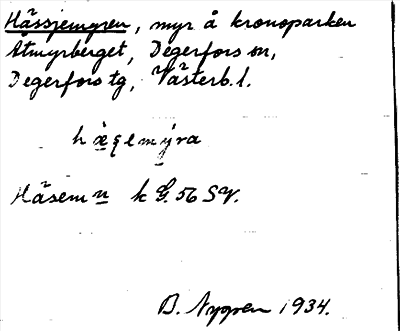 Hässjemyren, myr å kronoparken
Åtmyrberget, Degerfors sn,
Degerfors tg, Västerb. l.
Häsem n k G. 56 SV.
B. Nygren 1934.